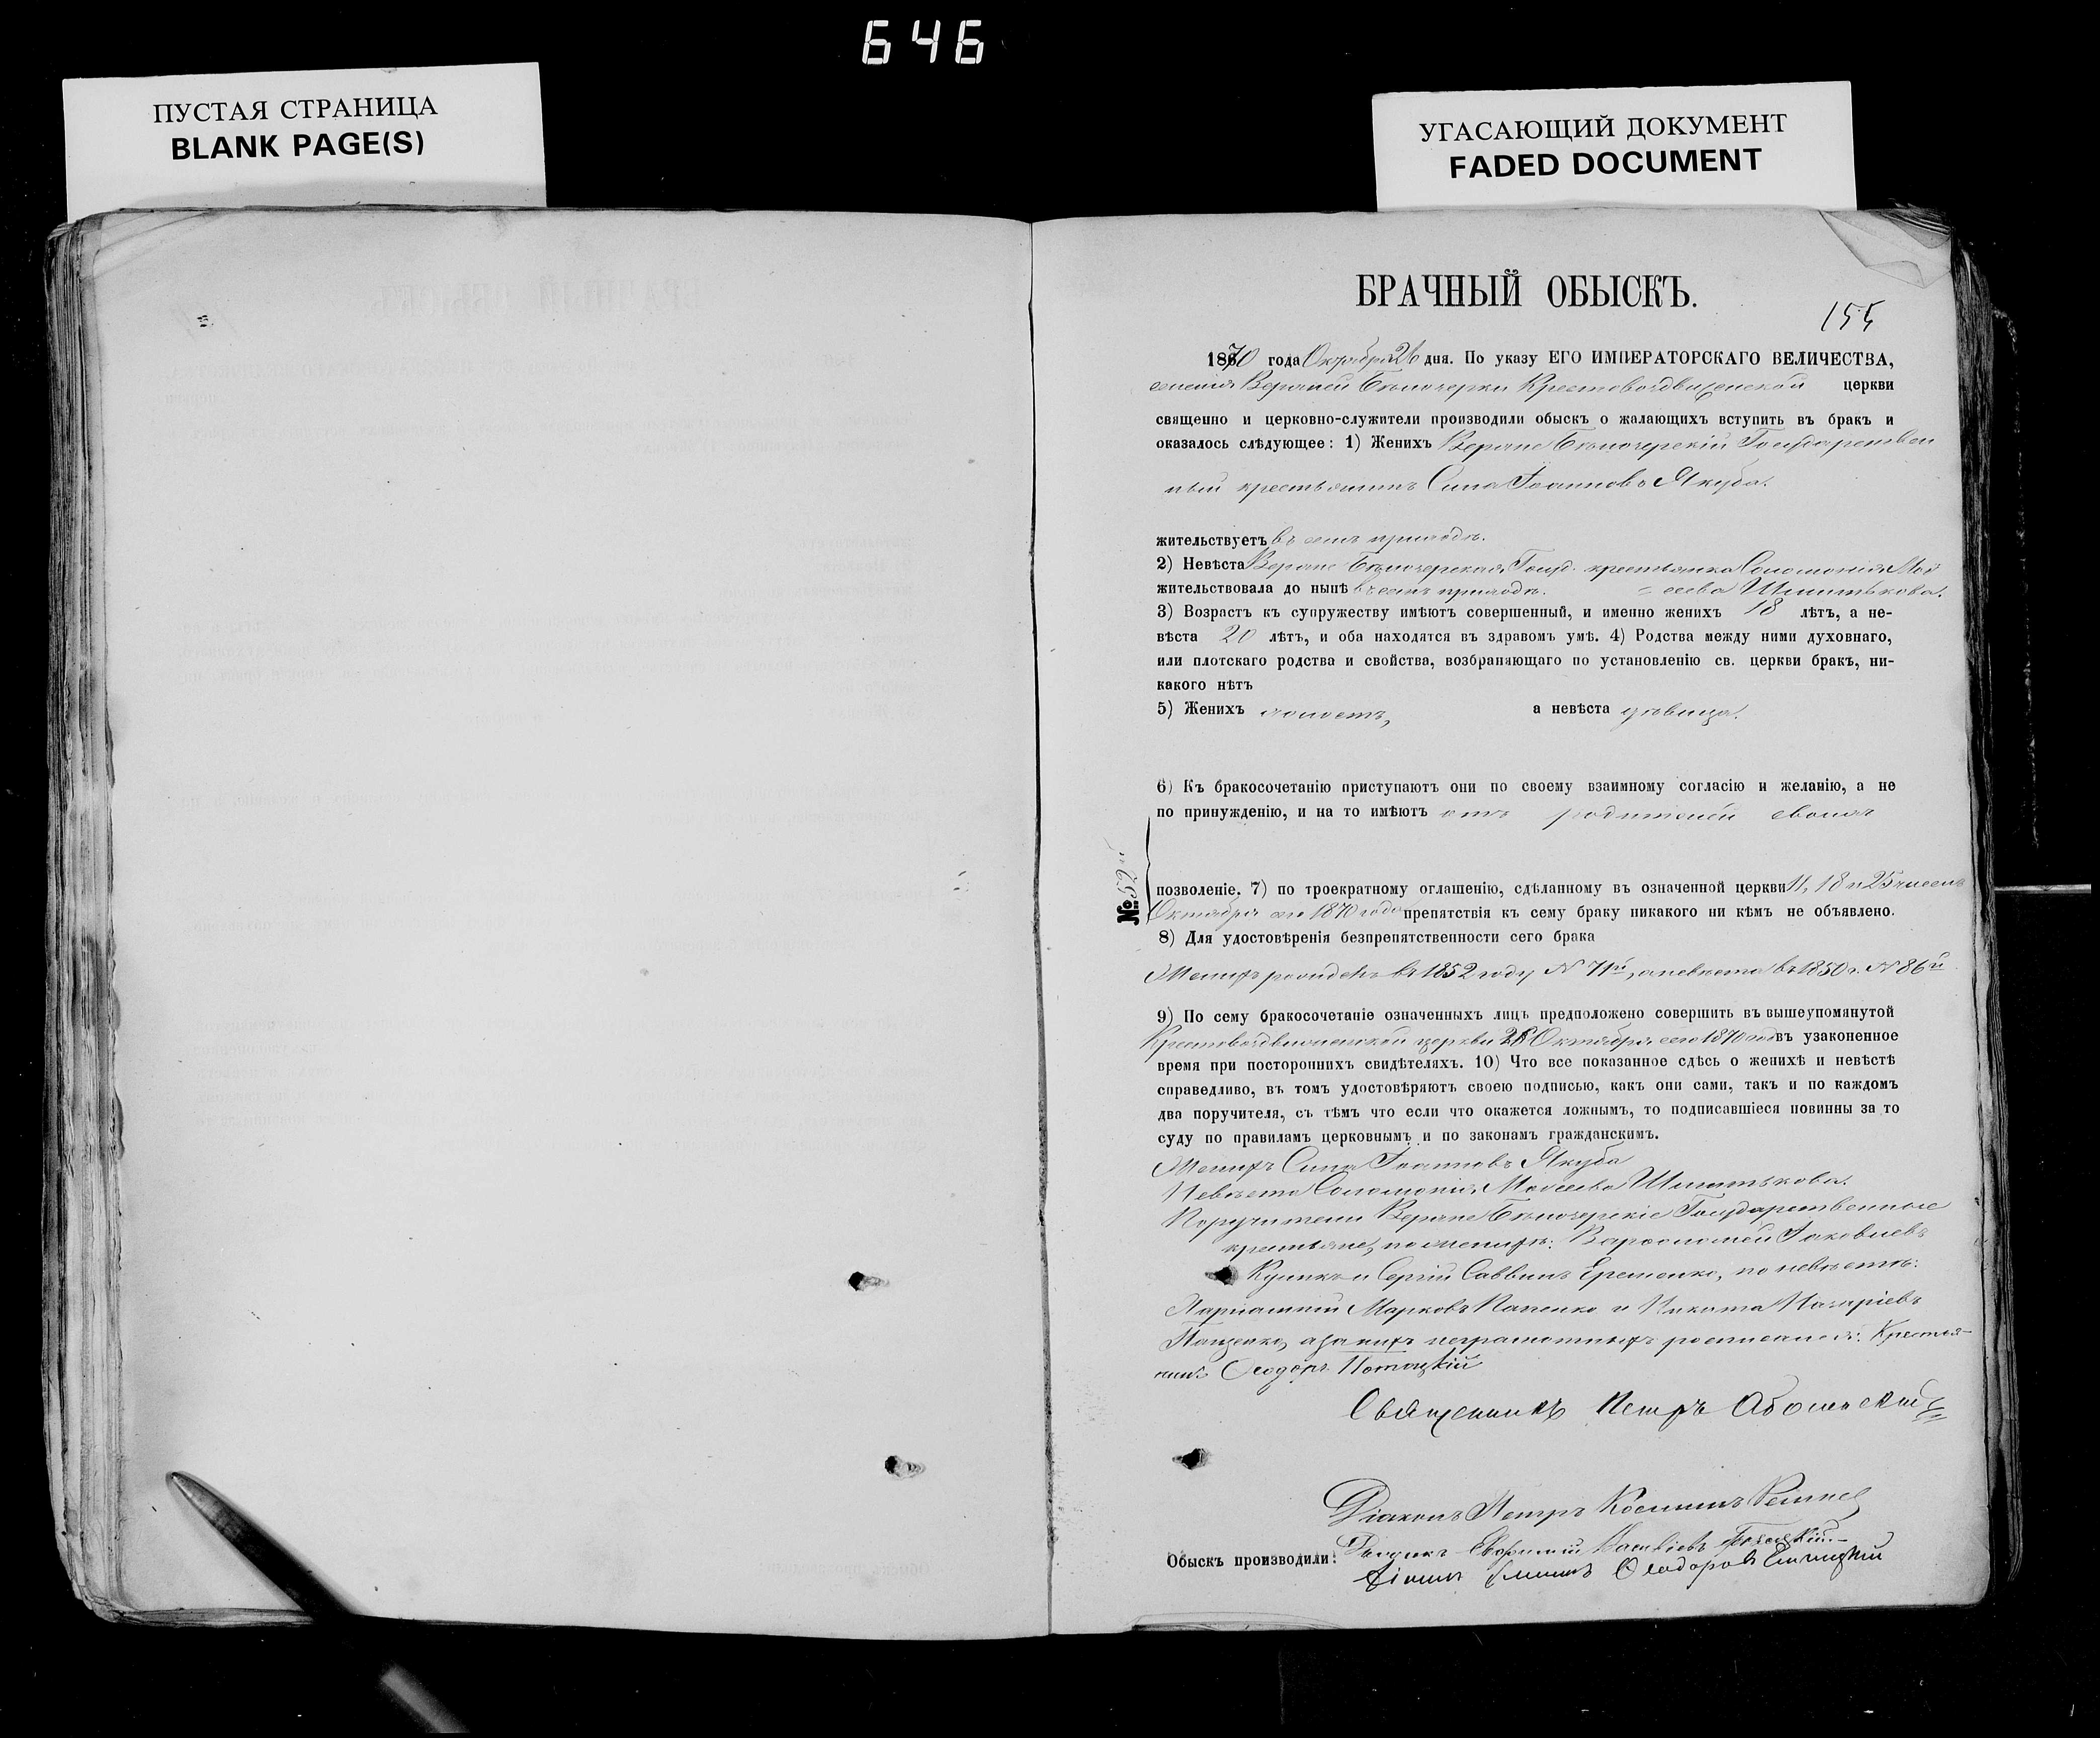 646
ПУСТАЯ СТРАНИЦА
BLANK PAGE(S)
УГАСАЮЩИЙ ДОКУМЕНТ
FADED DOCUMENT
БРАЧНЫЙ ОБЫСКЪ.
155
1870 года Октября 26 дня. По указу ЕГО ИМПЕРАТОРСКАГО ВЕЛИЧЕСТВА,
селенія Верхней Бѣлозерки Крестовоздвиженской церкви
священно и церковно-служители производили обыскъ о жалающихъ вступить въ бракъ и
оказалось слѣдующее: 1) Женихъ Верхне Бѣлозерскій Государствен
ный крестьянинъ Сила Іоанновъ Якуба.
жительствуетъ въ семъ приходѣ.
2) Невѣста Верхне Бѣлозерская Госуд. крестьянка Соломонія Мої
жительствовала до нынѣ въ семъ приходѣ. = сеева Шматькова.
3) Возрастъ къ супружеству имѣютъ совершенный, и именно женихъ 18 лѣтъ, а не-
вѣста 20 лѣтъ, и оба находятся въ здравомъ умѣ. 4) Родства между ними духовнаго,
или плотскаго родства и свойства, возбраняющаго по установленію св. церкви бракъ, ни-
какого нѣтъ
5) Женихъ холостъ, а невѣста дѣвица.
6) Къ бракосочетанію приступаютъ они по своему взаимному согласію и желанію, а не
по принужденію, и на то имѣютъ отъ родителей своихъ
№ 52й
позволеніе. 7) по троекратному оглашенію, сдѣланному въ означенной церкви 11, 18 и 25 чиселъ
Октября сего 1870 года препятствія къ сему браку никакого ни кѣмъ не объявлено.
8) Для удостовѣренія безпрепятственности сего брака
Женихъ рожденъ въ 1852 году N 71й, а невѣста въ 1850 г. N 86й
9) По сему бракосочетаніе означенныхъ лицъ предположено совершить въ вышеупомянутой
Крестовоздвиженской церкви 26 Октября сего 1870 года въ узаконенное
время при постороннихъ свидѣтеляхъ. 10) Что все показанное сдѣсь о женихѣ и невѣстѣ
справедливо, въ томъ удостовѣряютъ своею подписью, какъ они сами, такъ и по каждомъ
два поручителя, съ тѣмъ что если что окажется ложнымъ, то подписавшіеся повинны за то
суду по правиламъ церковнымъ и по законамъ гражданскимъ.
Женихъ Сила Іоанновъ Якуба
Невѣста Соломонія Моісеева Шматькова.
Поручители Верхне Бѣлозерскіе Государственные
крестьяне, по женихѣ: Варфоломей Іаковлевъ
Кулик и Сергій Саввинъ Еременко, по невѣстѣ:
Харлампій Марковъ Папенко и Никита Назаріевъ
Пащенко, а за нихъ неграмотныхъ росписался: Крестья-
нинъ Ѳеодоръ Потоцкій
Священникъ Петръ
Діаконъ Петръ Косминъ
Обыскъ производили: Ѳеодоровъ